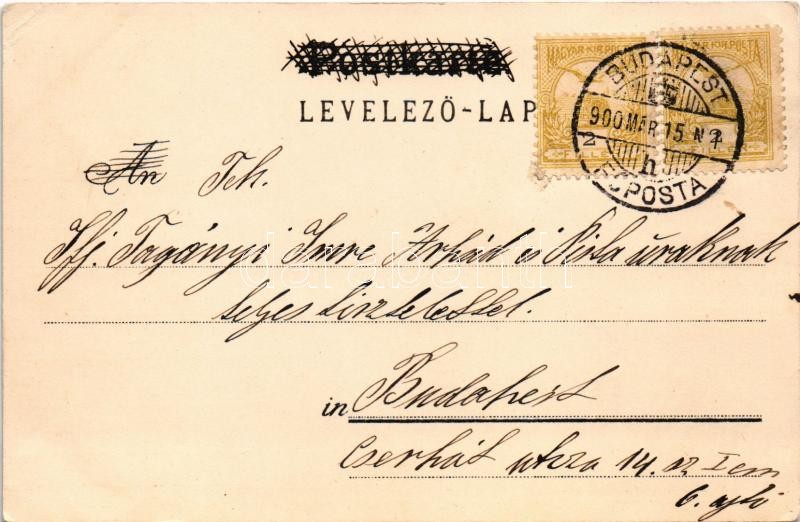 Postkarte
LEVELEZŐ-LAP
MAGYAR KIR. POSTA
KIR. POSTA
BUDAPEST
900 MÁR 15 N
2
h
FŐPOSTA
An Tek.
Ifj. Tagányi Imre Árpád és Béla uraknak
teljes tisztelettel.
in Budapest
Cserhát utcza 14. sz I em
6. ajtó
darabanth